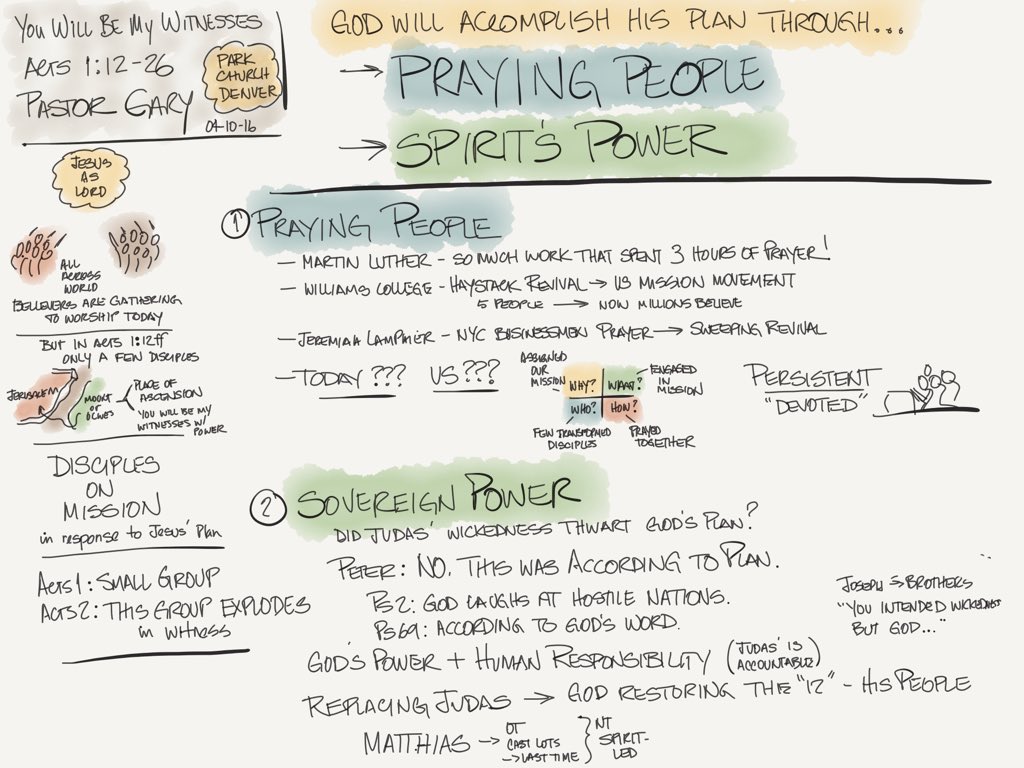 YOU WILL BE MY WITNESSES
ACTS 1:12-26
PASTOR GARY
PARK
CHURCH
DENVER
04-10-16
GOD WILL ACCOMPLISH HIS PLAN THROUGH...
→ PRAYING PEOPLE
→ SPIRIT'S POWER
JESUS
AS
LORD
ALL
ACROSS
WORLD
BELIEVERS ARE GATHERING
TO WORSHIP TODAY
BUT IN ACTS 1:12ff
ONLY A FEW DISCIPLES
JERUSALEM
MOUNT
OF
OLIVES
PLACE OF
ASCENSION
YOU WILL BE MY
WITNESSES W/
POWER
DISCIPLES
ON
MISSION
in response to Jesus' Plan
ACTS 1: SMALL GROUP
ACTS 2: THIS GROUP EXPLODES
in WITNESS
1 PRAYING PEOPLE
— MARTIN LUTHER - SO MUCH WORK THAT SPENT 3 HOURS OF PRAYER!
— WILLIAMS COLLEGE - HAYSTACK REVIVAL → US MISSION MOVEMENT
5 PEOPLE → NOW MILLIONS BELIEVE
— JEREMIAH LAMPHIER - NYC BUSINESSMEN PRAYER → SWEEPING REVIVAL
— TODAY ??? US ???
ASSIGNED
OUR
MISSION
WHY? WHAT?
WHO? HOW?
ENGAGED
IN
MISSION
FEW TRANSFORMED
DISCIPLES
PRAYED
TOGETHER
PERSISTENT
"DEVOTED"
2 SOVEREIGN POWER
DID JUDAS' WICKEDNESS THWART GOD'S PLAN?
PETER: NO. THIS WAS ACCORDING TO PLAN.
Ps 2: GOD LAUGHS AT HOSTILE NATIONS.
Ps 69: ACCORDING TO GOD'S WORD.
JOSEPH & BROTHERS
"YOU INTENDED WICKEDNESS
BUT GOD..."
GOD'S POWER + HUMAN RESPONSIBILITY (JUDAS' IS
ACCOUNTABLE)
REPLACING JUDAS → GOD RESTORING THE "12" - HIS PEOPLE
MATTHIAS →
OT
CAST LOTS
→ LAST TIME
NT
SPIRIT-
LED